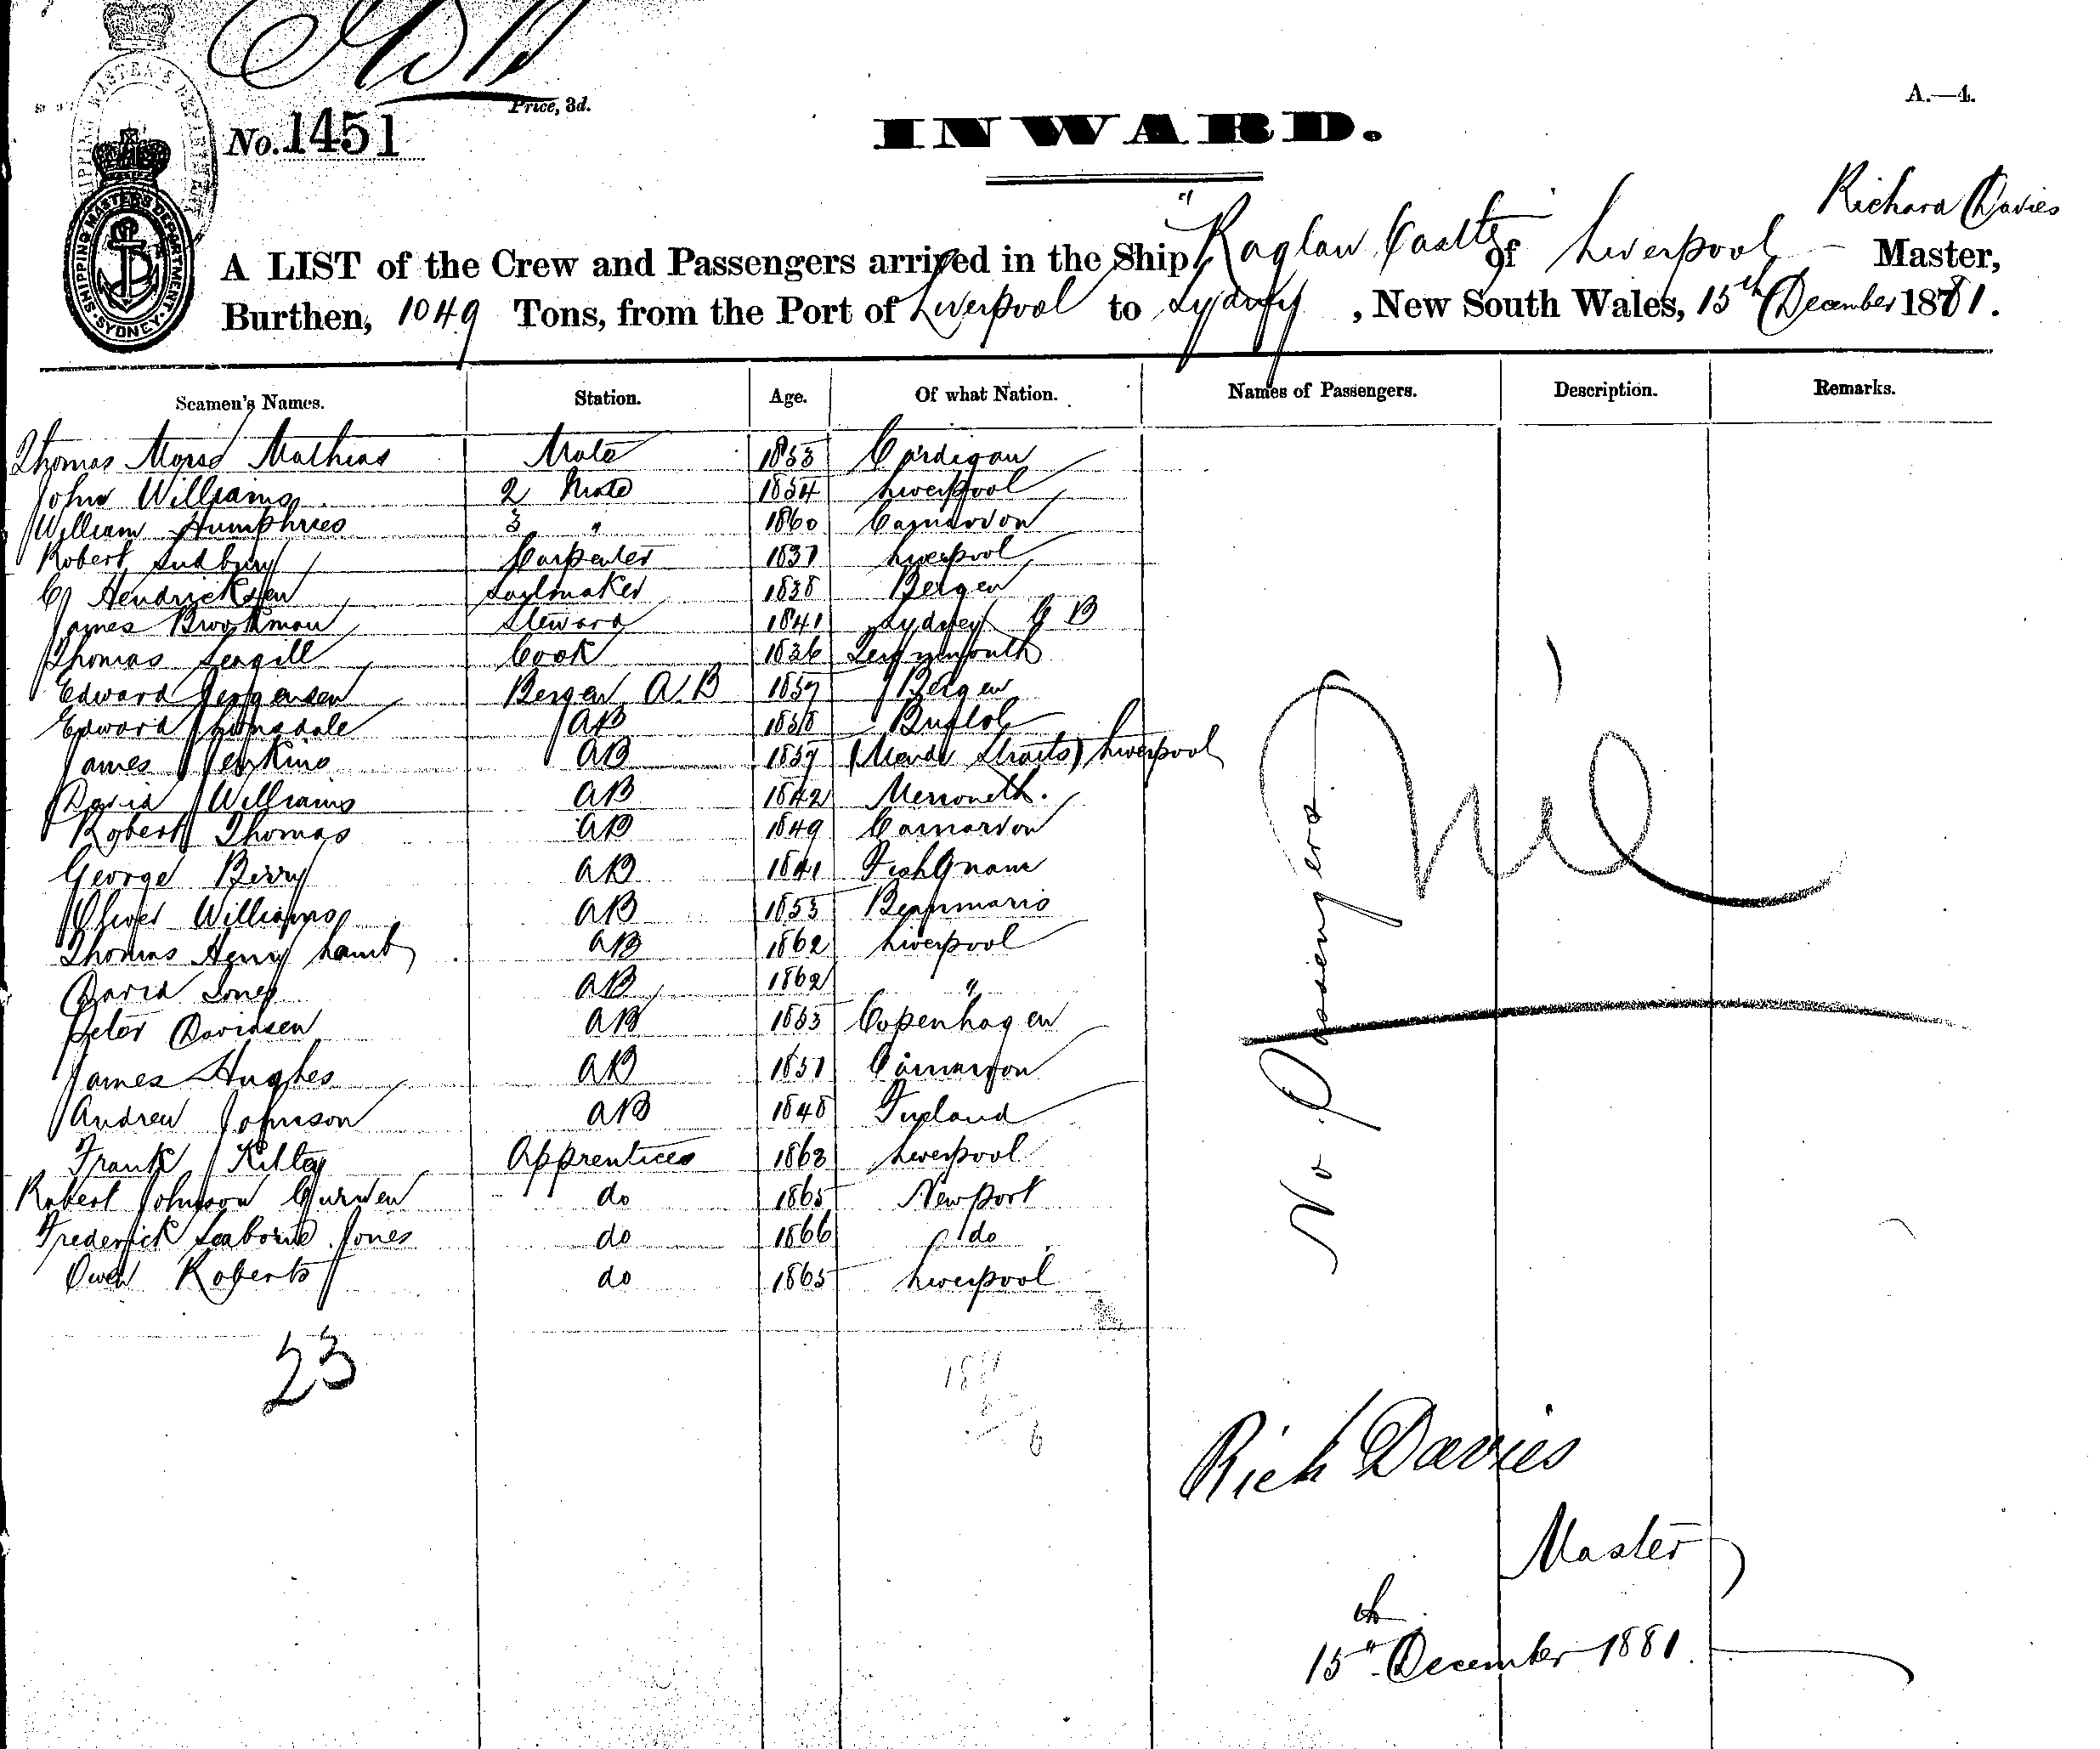 A.—4.
Price, 3d.
No. 1451
INWARD.
Richard Davies
A LIST of the Crew and Passengers arrived in the Ship "Raglan Castle" of Liverpool Master,
Burthen, 1049 Tons, from the Port of Liverpool to Sydney, New South Wales, 15th December 1881.
SHIPPING MASTER'S DEPARTMENT SYDNEY
Seamen's Names. Station. Age. Of what Nation. Names of Passengers. Description. Remarks.
Thomas Morse Mathias Mate 1853 Cardigan
John Williams 2 Mate 1854 Liverpool
William Humphries 3 " 1860 Carnarvon
Robert Sudbury Carpenter 1837 Liverpool
C Hendricksen Sailmaker 1838 Bergen
James Brookman Steward 1841 Sydney C B
Thomas Seagill Cook 1836
Edward Jergensen Bergen A.B 1857 Bergen
Edward Lonsdale AB 1838
James Jenkins AB 1857 (Menai Straits) Liverpool
David Williams AB 1842 Merioneth.
Robert Thomas AB 1849 Carnarvon
George Berry AB 1841
Oliver Williams AB 1853 Beaumaris
Thomas Henry Lamb AB 1862 Liverpool
David Jones AB 1862 "
Peter Davidsen AB 1853 Copenhagen
James Hughes AB 1851 Carnarvon
Andrew Johnson AB 1848 Finland
Frank Kilby Apprentices 1863 Liverpool
Robert Johnson Curwen do 1865 Newport
Frederick Seaborne Jones do 1866 do
Owen Roberts do 1865 Liverpool
23
No Passengers
Nil
Rich Davies
Master
15th December 1881.